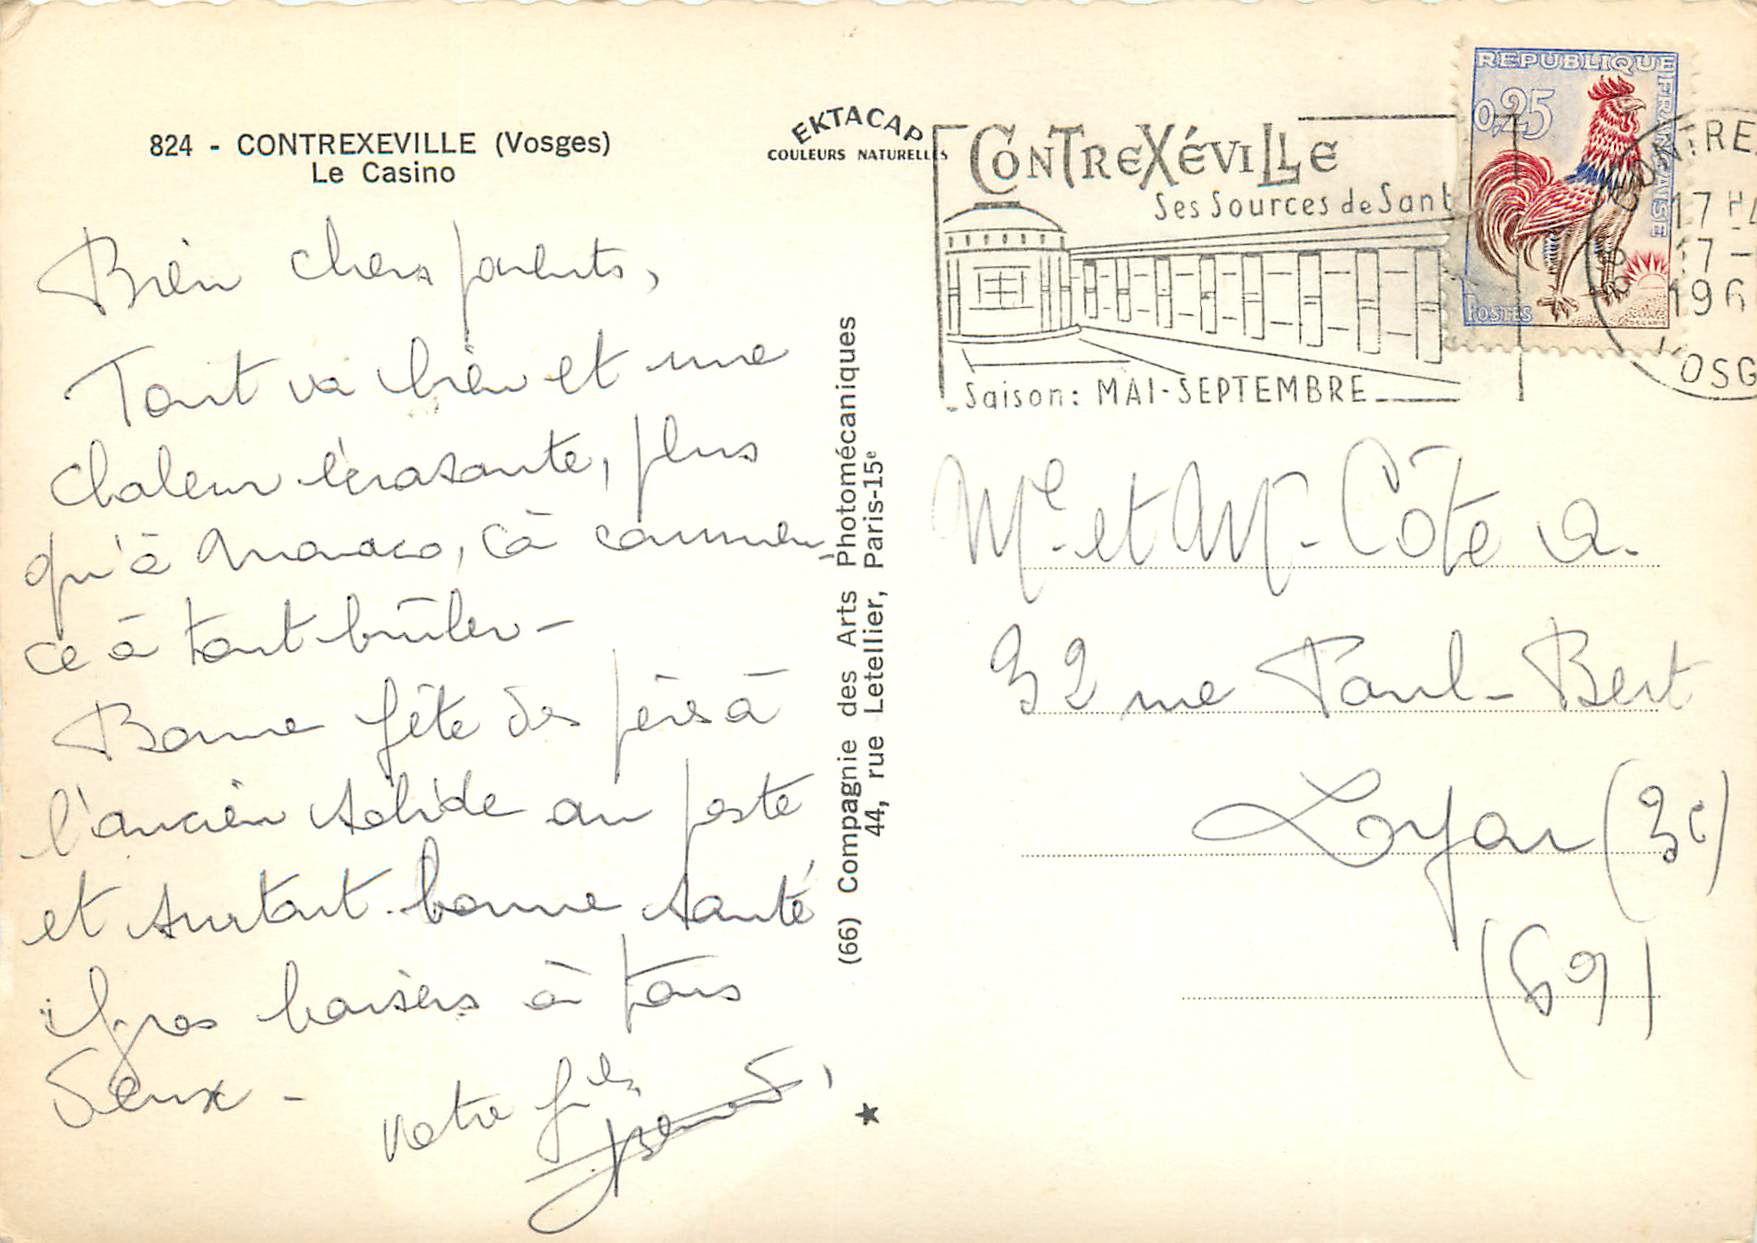 824 - CONTREXEVILLE (Vosges)
Le Casino
Bien chers parents,
Tout va bien et une
chaleur écrasante, plus
qu'à Monaco, çà commen-
ce à tout brûler -
Bonne fête des pères à
l'ancien solide au poste
et surtout bonne santé
Gros baisers à tous
deux -
Votre fils
EKTACAP
COULEURS NATURELLES
(66) Compagnie des Arts Photomécaniques
44, rue Letellier, Paris-15e
CONTREXÉVILLE
Ses Sources de Sant
Saison: MAI-SEPTEMBRE
REPUBLIQUE FRANÇAISE
0,25
POSTES
CONTREX
17 H
17 -
196
VOSG
Mr et Mme Côte A.
32 rue Paul-Bert
Lyon (3e)
(69)